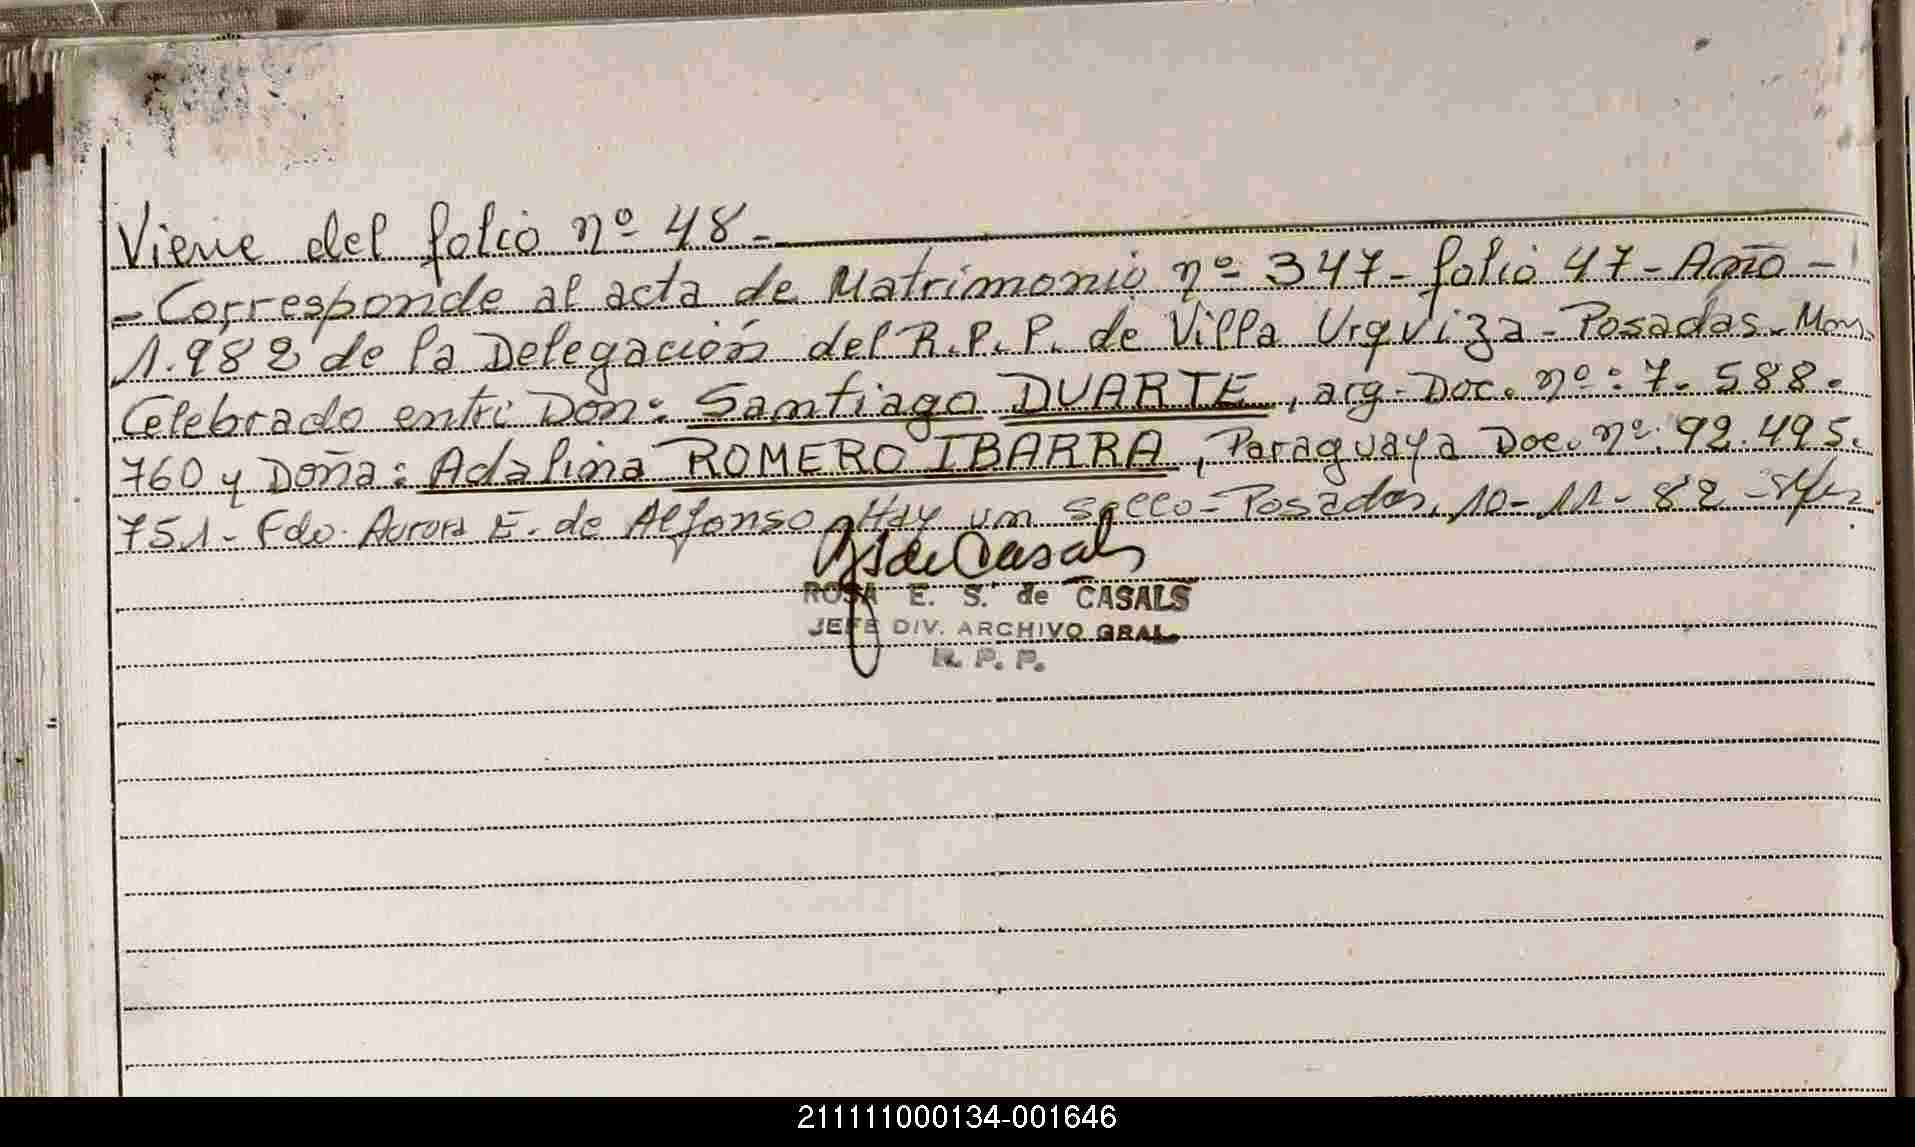 Viene del folio nº 48.-
- Corresponde al acta de Matrimonio nº 347- folio 47- Año -
1.982 de la Delegación del R.P.P. de Villa Urquiza- Posadas- Mnes.
Celebrado entre Don: Santiago DUARTE, arg- Doc. nº: 7. 588.
760 y Doña: Adalina ROMERO IBARRA, Paraguaya Doc. nº: 92.495.
751- Fdo. Aurora E. de Alfonso Hay un sello- Posadas, 10- 11- 82
ROSA E. S. de CASALS
JEFE DIV. ARCHIVO GRAL.
R. P. P.
211111000134-001646